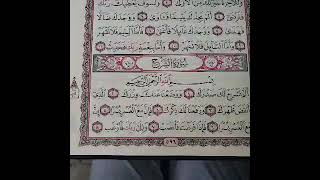 وَلَلۡأٓخِرَةُ خَيۡرٞ لَّكَ مِنَ ٱلۡأُولَىٰ ٤ وَلَسَوۡفَ يُعۡطِيكَ رَبُّكَ
فَتَرۡضَىٰٓ ٥ أَلَمۡ يَجِدۡكَ يَتِيمٗا فَـَٔاوَىٰ ٦ وَوَجَدَكَ ضَآلّٗا
فَهَدَىٰ ٧ وَوَجَدَكَ عَآئِلٗا فَأَغۡنَىٰ ٨ فَأَمَّا ٱلۡيَتِيمَ فَلَا تَقۡهَرۡ
٩ وَأَمَّا ٱلسَّآئِلَ فَلَا تَنۡهَرۡ ١٠ وَأَمَّا بِنِعۡمَةِ رَبِّكَ فَحَدِّثۡ ١١
سُورَةُ الشَّرْحِ
بِسۡمِ ٱللَّهِ ٱلرَّحۡمَٰنِ ٱلرَّحِيمِ
أَلَمۡ نَشۡرَحۡ لَكَ صَدۡرَكَ ١ وَوَضَعۡنَا عَنكَ وِزۡرَكَ ٢ ٱلَّذِيٓ
أَنقَضَ ظَهۡرَكَ ٣ وَرَفَعۡنَا لَكَ ذِكۡرَكَ ٤ فَإِنَّ مَعَ ٱلۡعُسۡرِ يُسۡرًا ٥
إِنَّ مَعَ ٱلۡعُسۡرِ يُسۡرٗا ٦ فَإِذَا فَرَغۡتَ فَٱنصَبۡ ٧ وَإِلَىٰ رَبِّكَ فَٱرۡغَب ٨
٥٩٦